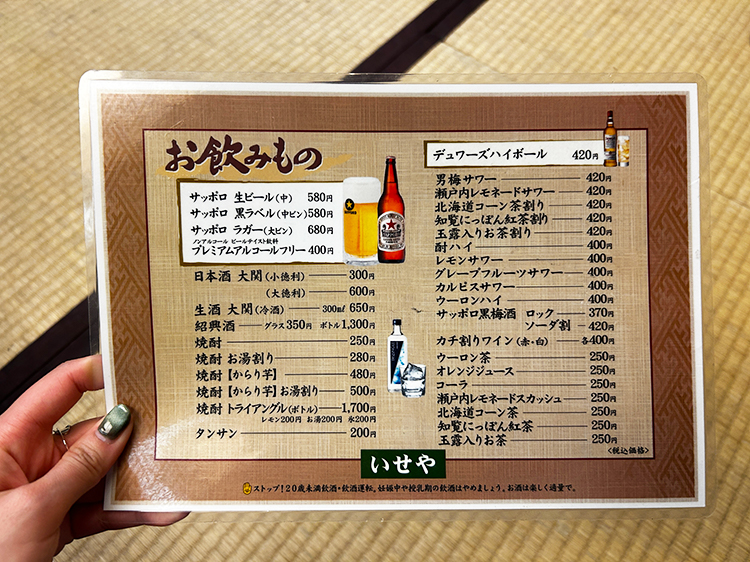 お飲みもの
サッポロ 生ビール(中) 580円
サッポロ 黒ラベル(中ビン)580円
サッポロ ラガー(大ビン) 680円
ノンアルコール ビールテイスト飲料
プレミアムアルコールフリー 400円
日本酒 大関(小徳利) 300円
(大徳利) 600円
生酒 大関(冷酒) 300㎖ 650円
紹興酒 グラス350円 ボトル1,300円
焼酎 250円
焼酎 お湯割り 280円
焼酎【からり芋】 480円
焼酎【からり芋】お湯割り 500円
焼酎 トライアングル(ボトル) 1,700円
レモン200円 お湯200円 氷200円
タンサン 200円
デュワーズハイボール 420円
男梅サワー 420円
瀬戸内レモネードサワー 420円
北海道コーン茶割り 420円
知覧にっぽん紅茶割り 420円
玉露入りお茶割り 420円
酎ハイ 400円
レモンサワー 400円
グレープフルーツサワー 400円
カルピスサワー 400円
ウーロンハイ 400円
サッポロ黒梅酒 ロック 370円
ソーダ割 420円
カチ割りワイン(赤・白) 各400円
ウーロン茶 250円
オレンジジュース 250円
コーラ 250円
瀬戸内レモネードスカッシュ 250円
北海道コーン茶 250円
知覧にっぽん紅茶 250円
玉露入りお茶 250円
<税込価格>
いせや
ストップ!20歳未満飲酒・飲酒運転。妊娠中や授乳期の飲酒はやめましょう。お酒は楽しく適量で。